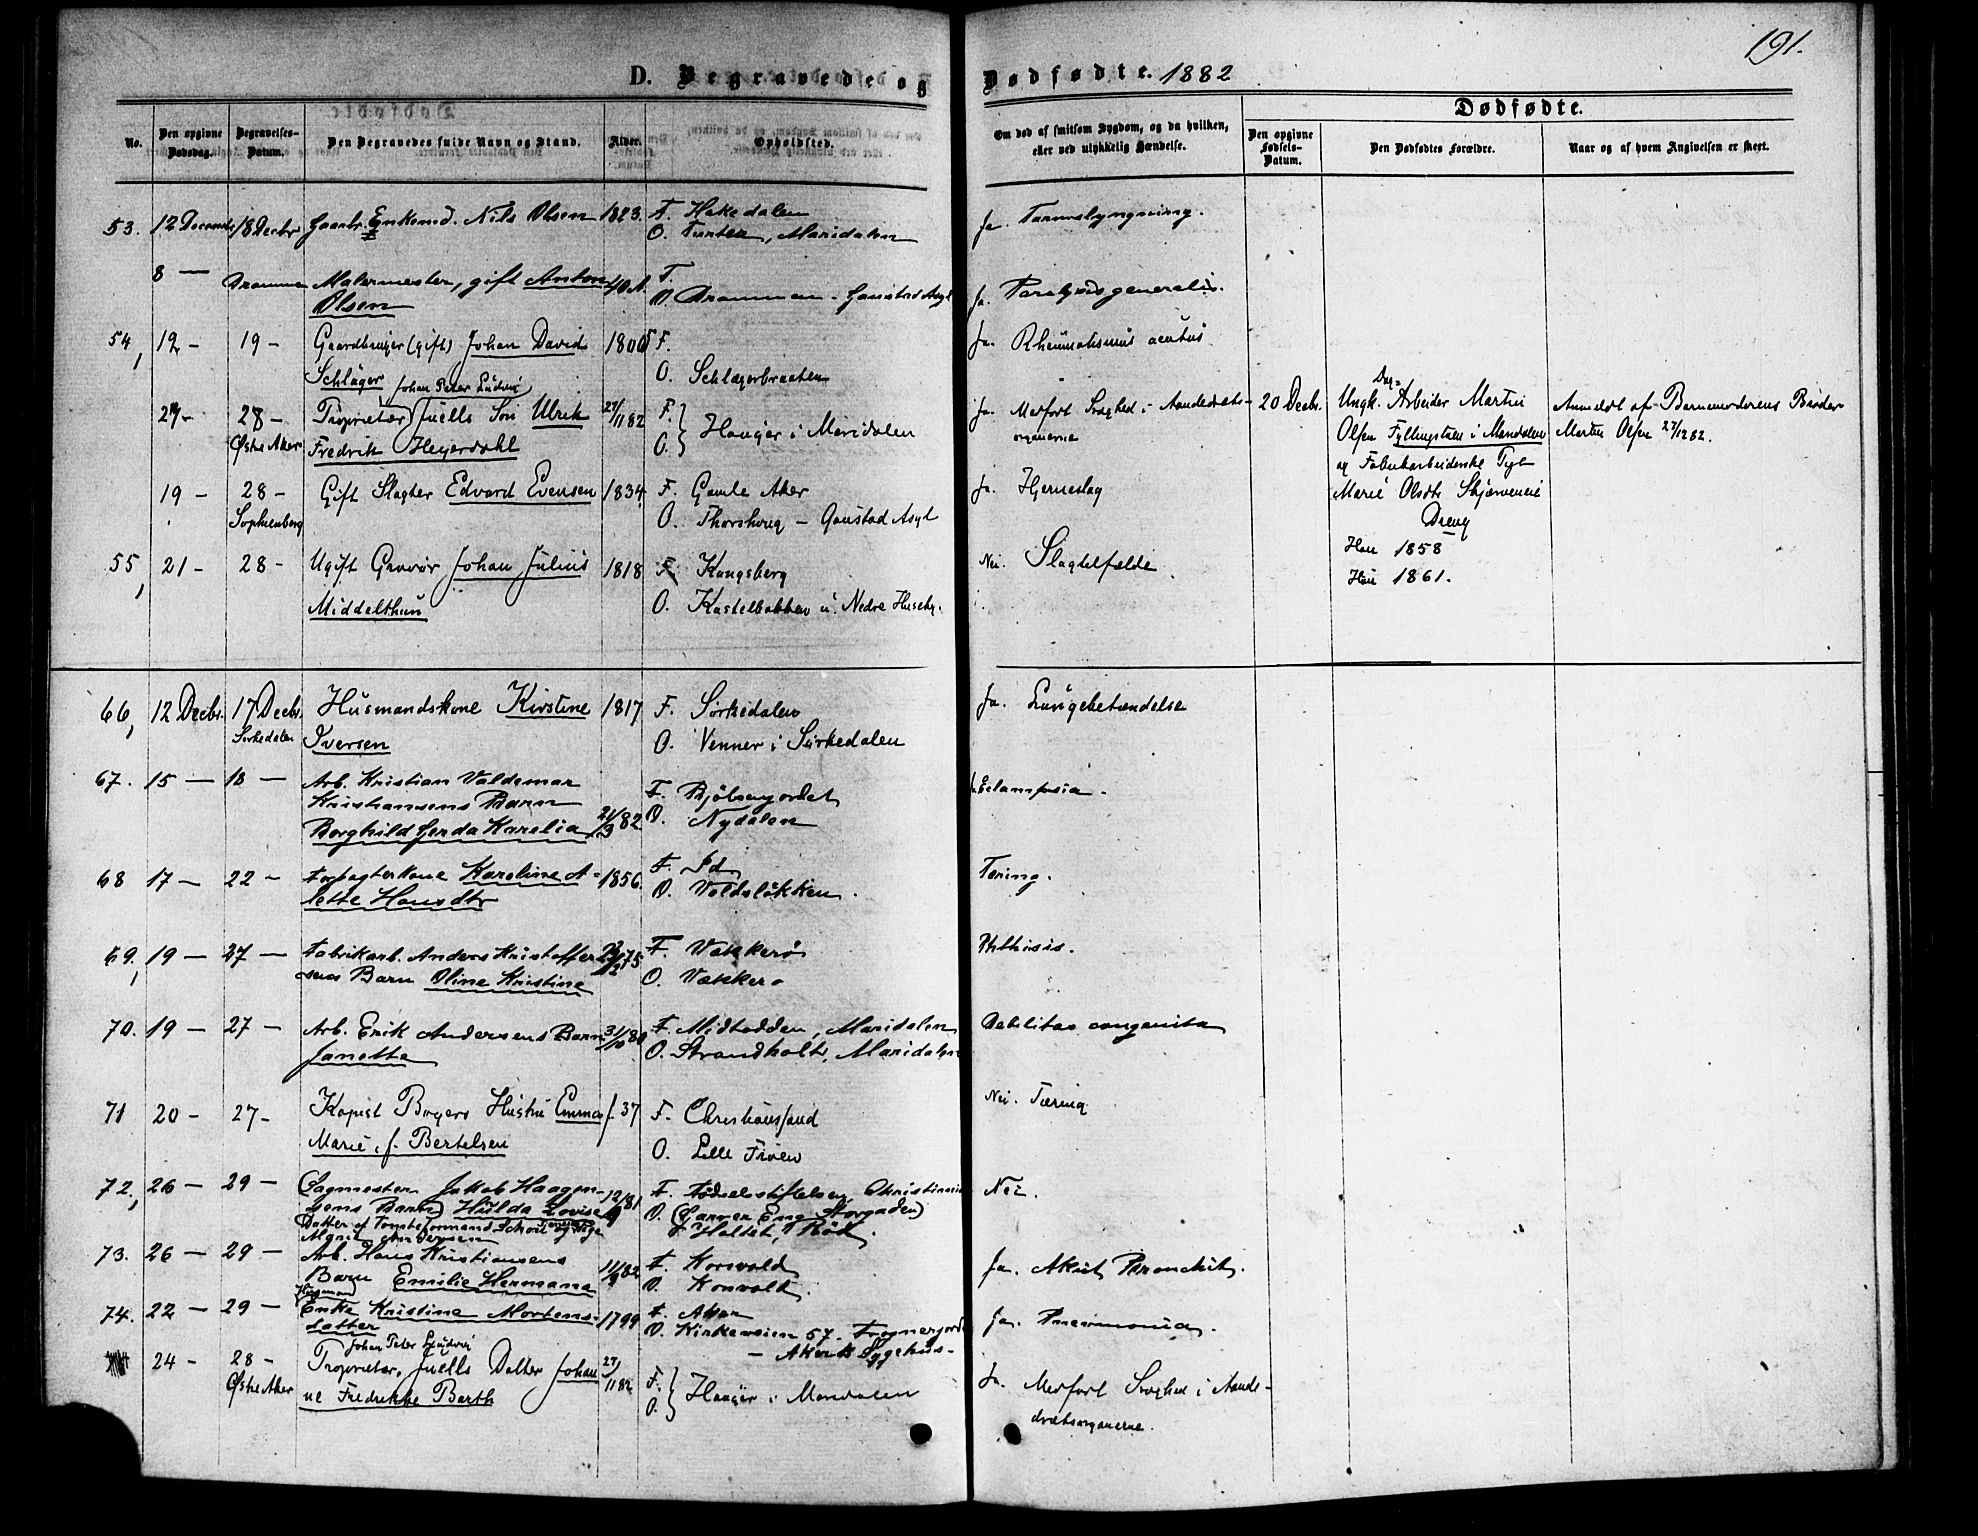 191.
D. Begravede og Dødfødte. 1882
Dødfødte.
No.
Den opgivne Dødsdag.
Begravelses-Datum.
Den Begravedes fulde Navn og Stand.
Alder.
Opholdsted.
Om død af smitsom Sygdom, og da hvilken, eller ved ulykkelig Hændelse.
Den opgivne Fødsels-Datum.
Den Dødfødtes Forældre.
Naar og af hvem Angivelsen er skeet.
53. 12 Decembr 18 Decbr Gaarbr. Enkemd. Nils Olsen 1823. F. Hakedalen
O. Turter, Maridalen
Ja. Tarmslyngning.
8 — Drammen Malermester, gift Anton 40 A. F.
Olsen O. Drammen - Gaustad Asyl
Ja. Paralysis generalis.
54, 12 - 19 - Gaardbruger (gift) Johan David 1800 F.
Schläger O. Schlagerbraaten
Ja. Rheumatismus acutus
Johan Peter Ludvig
27 - 28 - Proprietær Juells Søn Ulrik 27/11 82 F.
Østre Aker Fredrik Heyerdahl O. Hauger i Maridalen
Ja. Medført Svaghed i Aandedræts-
organerne
20 Decbr. Ungk. Dag= Arbeider Martin
Olsen Fyllingstuen i Maridalen
og Fabrikarbeiderske Pige
Marie Olsdtr Skjærveneie
Dreng
Han 1858
Hun 1861.
Anmeldt af Barnemoderens Broder
Martin Olsen 27/12 82.
19 - 28 - Gift Slagter Edvard Evensen 1834 F. Gamle Aker
Sophienberg O. Thorshoug - Gaustad Asyl
Ja. Hjerneslag
55, 21 - 28 - Ugift Gravør Johan Julius 1818 F. Kongsberg
Middelthun O. Kastelbakken u. Nedre Huseby.
Nei. Slagtilfælde
66, 12 Decbr. 17 Decbr. Husmandskone Kirstine 1817 F. Sørkedalen
Sørkedalen Iversen O. Venner i Sørkedalen
Ja. Lungebetændelse
67. 15 — 18 — Arb. Kristian Valdemar
Kristiansens Barn F. Bjølsenjordet
Borghild Gerda Karelia 21/3 82 O. Nydalen
Eclampsia.
68 17 — 22 - Forpagterkone Karoline A- 1856. F. Id
lette Hansdtr O. Voldsløkken.
Tæring.
69, 19 — 27 — Fabrikarb. Anders Kristoffer F. Vækkerø
sens Barn Oline Kristine O. Vækkerø
Phthisis.
70. 19 — 27 — Arb. Erik Andersens Barn 31/10 80 F. Midtodden, Maridalen
Janette O. Strandholt, Maridalen
Debilitas congenita
71 20 - 27 - Kopist Boyers Hustru Emma f. 37 F. Christiansand
Marie, f. Bertelsen O. Lille Frøen
Nei. Tæring
72, 26 — 29 — (Sagmester Jakob Haagen- 12/9 81 F. Fødselsstiftelsen, Christiania
sens Barn) Hulda Lovise O. (Garver Eng Storgaden)
Datter af Tomteformand Pige
Maria Andersen Holdet, Røa.
Nei.
73. 26 — 29 — Arb. Hans Kristiansens F. Korsvold
Barn Emilie Hermana 11/9 82 O. Korsvold.
Ja. Akut Bronchit.
(Husmand)
74. 22 — 29 — Enke Kristine Mortens- 1799 F. Aker
datter O. Kirkeveien 57. Frognerjordet
— Akers Sygehus -
Ja. Pneumonia.
Johan Peter Ludvig
24 - 28 - Proprietær, Juells Datter Johan 27/11 82 F.
Østre Aker ne Fredrikke Barth O. Hauger i Maridalen
Ja. Medført Svaghed i Aande-
drætsorganerne.